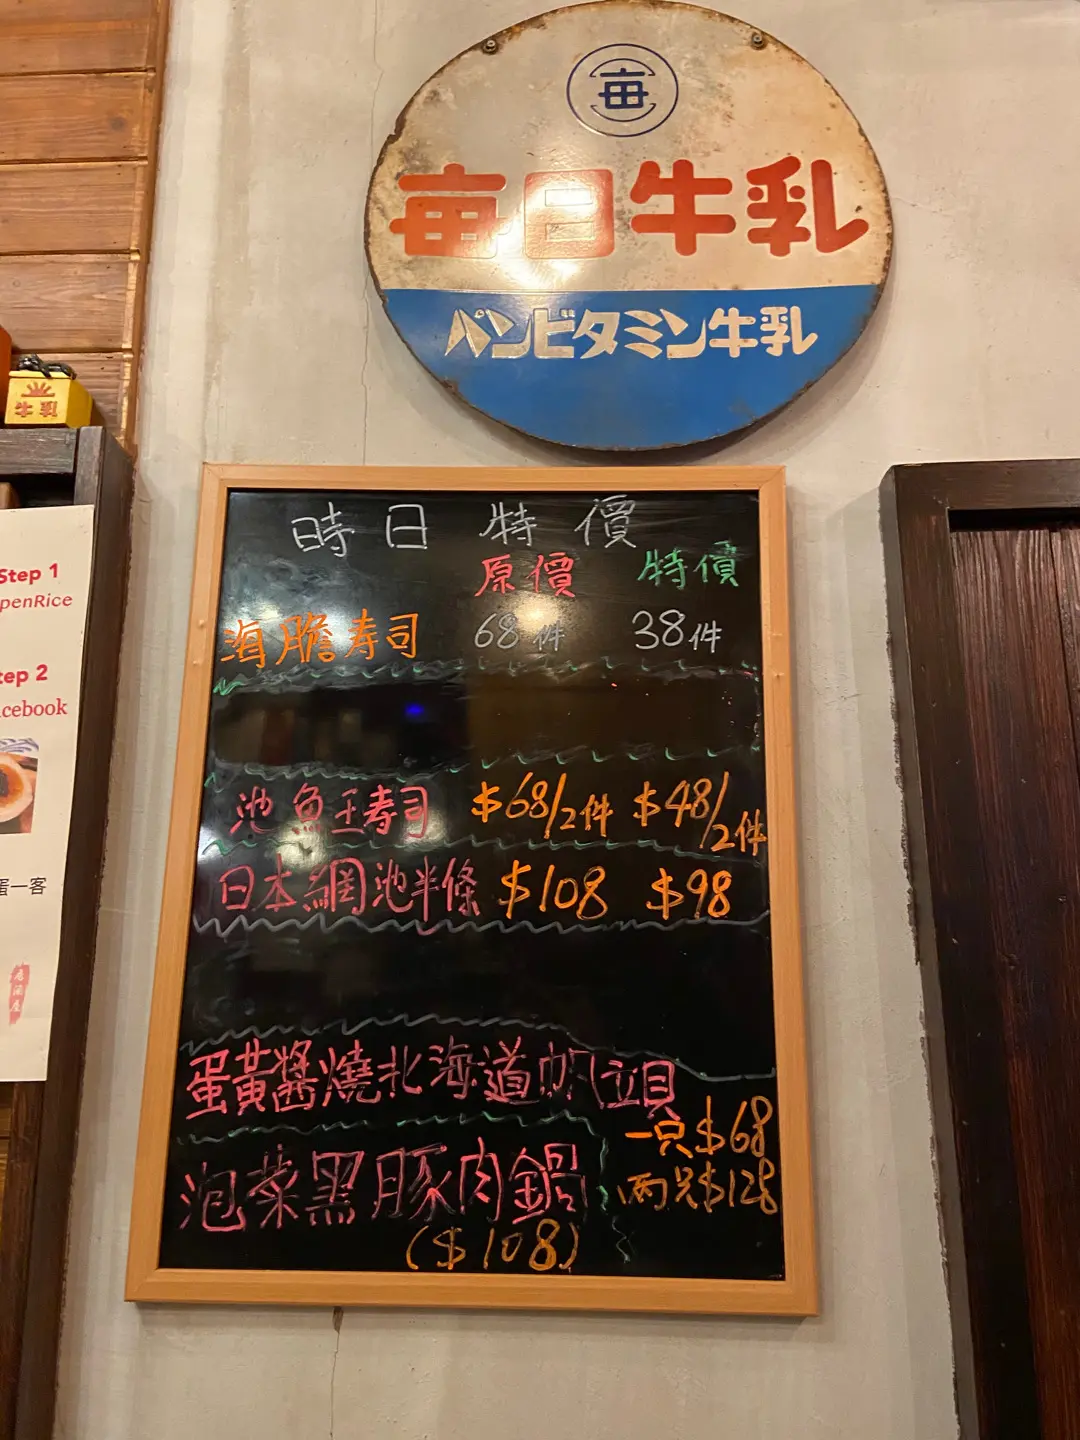 毎
毎日牛乳
パンビタミン牛乳
牛乳
時日特價
原價 特價
海膽寿司 68件 38件
池魚王寿司 $68/2件 $48/2件
日本網池半條 $108 $98
蛋黃醬燒北海道帆立貝
一只$68
兩只$128
泡菜黑豚肉鍋
($108)
Step 1
penRice
tep 2
cebook
蛋一客